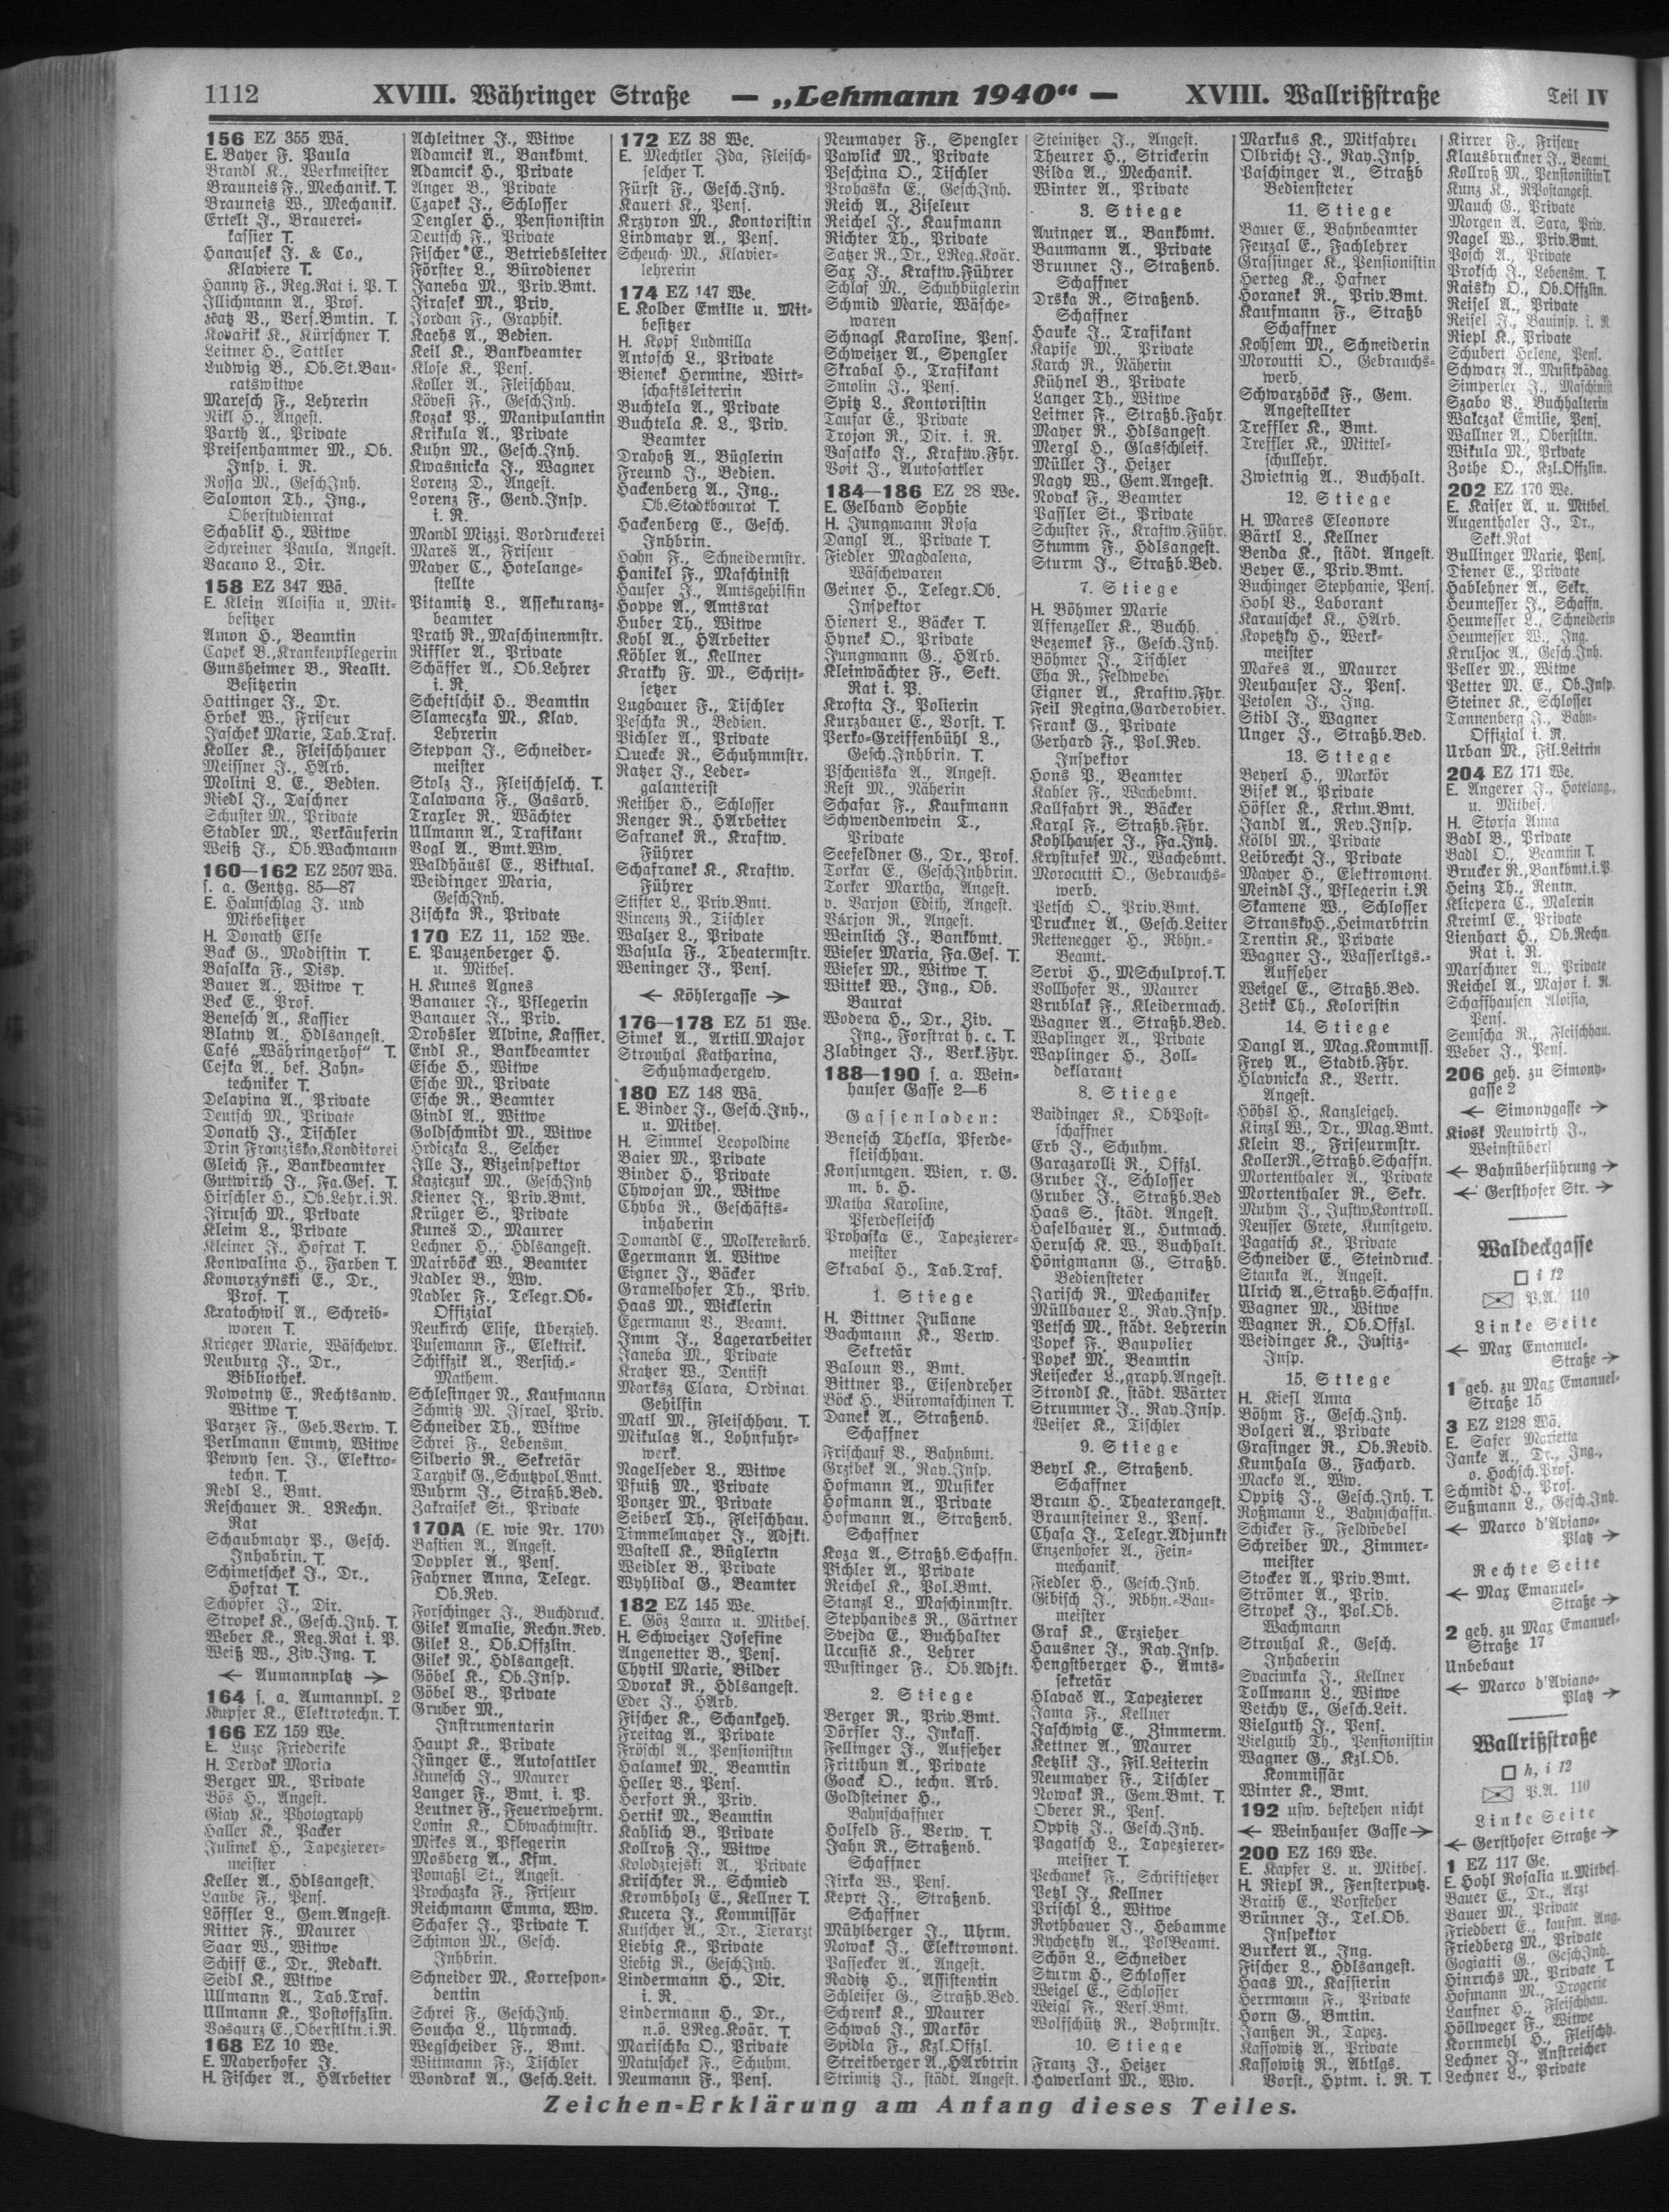 1112
XVIII. Währinger Straße
— „Lehmann 1940“ —
XVIII. Wallrißstraße
Teil IV
156 EZ 355 Wä.
E. Bayer F. Paula
Brandl K., Werkmeister
Brauneis F., Mechanik. T.
Brauneis W., Mechanik.
Ertelt J., Brauerei-
kassier T.
Hanausek J. & Co.,
Klaviere T.
Hanny F., Reg.Rat i. P. T.
Illichmann A., Prof.
Katz V., Vers.Bmtin. T.
Kovařik K., Kürschner T.
Leitner H., Sattler
Ludwig B., Ob.St.Bau-
ratswitwe
Maresch F., Lehrerin
Nikl H., Angest.
Parth A., Private
Preisenhammer M., Ob.
Insp. i. R.
Rossa M., GeschInh.
Salomon Th., Ing.,
Oberstudienrat
Schablik H., Witwe
Schreiner Paula, Angest.
Vacano L., Dir.
158 EZ 347 Wä.
E. Klein Aloisia u. Mit-
besitzer
Amon H., Beamtin
Capek B., Krankenpflegerin
Gunsheimer B., Realit.
Besitzerin
Hattinger J., Dr.
Hrbek W., Friseur
Jaschek Marie, Tab.Traf.
Koller K., Fleischhauer
Meissner J., HArb.
Molini L. E., Bedien.
Riedl J., Taschner
Schuster M., Private
Stadler M., Verkäuferin
Weiß J., Ob.Wachmann
160—162 EZ 2507 Wä.
s. a. Gentzg. 85—87
E. Halmschlag J. und
Mitbesitzer
H. Donath Else
Back G., Modistin T.
Basalka F., Disp.
Bauer A., Witwe T.
Beck E., Prof.
Benesch A., Kassier
Blatny A., Hdlsangest.
Café „Währingerhof“ T.
Cejka A., bef. Zahn-
techniker T.
Delapina A., Private
Deutsch M., Private
Donath J., Tischler
Drin Franziska, Konditorei
Gleich F., Bankbeamter
Gutwirth J., Fa.Ges. T.
Hirschler H., Ob.Lehr.i.R.
Jirusch M., Private
Kleim L., Private
Kleiner J., Hofrat T.
Konwalina H., Farben T.
Komorzynski E., Dr.,
Prof. T.
Kratochwil A., Schreib-
waren T.
Krieger Marie, Wäschewr.
Neuburg J., Dr.,
Bibliothek.
Nowotny E., Rechtsanw.
Witwe T.
Parzer F., Geb.Verw. T.
Perlmann Emmy, Witwe
Pewny sen. J., Elektro-
techn. T.
Redl L., Bmt.
Reschauer R., LRechn.
Rat
Schaubmayr P., Gesch.
Inhabrin. T.
Schimetschek J., Dr.,
Hofrat T.
Schöpfer J., Dir.
Stropek K., Gesch.Inh. T.
Weber K., Reg.Rat i. P.
Weiß W., Ziv.Ing. T.
← Aumannplatz →
164 s. a. Aumannpl. 2
Kupfer K., Elektrotechn. T.
166 EZ 159 We.
E. Luze Friederike
H. Derdak Maria
Berger M., Private
Bös H., Angest.
Giay K., Photograph
Haller K., Packer
Julinek H., Tapezierer-
meister
Keller A., Hdlsangest.
Laube F., Pens.
Löffler L., Gem.Angest.
Ritter F., Maurer
Saar W., Witwe
Schiff E., Dr., Redakt.
Seidl K., Witwe
Ullmann A., Tab.Traf.
Ullmann K., Postoffzlin.
Vasqurz E., Oberstltn.i.R.
168 EZ 10 We.
E. Mayerhofer J.
H. Fischer A., HArbeiter
Achleitner J., Witwe
Adamcik A., Bankbmt.
Adamcik H., Private
Anger B., Private
Czapek J., Schlosser
Dengler H., Pensionistin
Deutsch F., Private
Fischer E., Betriebsleiter
Förster L., Bürodiener
Janeba M., Priv.Bmt.
Jirasek M., Priv.
Jordan F., Graphik.
Kaehs A., Bedien.
Keil K., Bankbeamter
Klose K., Pens.
Koller A., Fleischhau.
Kövesi F., GeschInh.
Kozak P., Manipulantin
Krikula A., Private
Kuhn M., Gesch.Inh.
Kwasnicka J., Wagner
Lorenz D., Angest.
Lorenz F., Gend.Insp.
i. R.
Mandl Mizzi, Vordruckerei
Mareš A., Friseur
Mayer C., Hotelange-
stellte
Pitamitz L., Assekuranz-
beamter
Prath R., Maschinenmstr.
Riffler A., Private
Schäffer A., Ob.Lehrer
i. R.
Scheftschik H., Beamtin
Slameczka M., Klav.
Lehrerin
Steppan J., Schneider-
meister
Stolz J., Fleischselch. T.
Talawana F., Gasarb.
Traxler R., Wächter
Ullmann A., Trafikant
Vogl A., Bmt.Ww.
Waldhäusl E., Viktual.
Weidinger Maria,
GeschInh.
Zischka R., Private
170 EZ 11, 152 We.
E. Pauzenberger H.
u. Mitbes.
H. Kunes Agnes
Banauer J., Pflegerin
Banauer J., Priv.
Drohsler Alvine, Kassier.
Endl K., Bankbeamter
Esche H., Witwe
Esche M., Private
Esche R., Beamter
Gindl A., Witwe
Goldschmidt M., Witwe
Hrdiczka L., Selcher
Ille J., Vizeinspektor
Kaziczuk M., GeschInh
Kiener J., Priv.Bmt.
Krüger S., Private
Kuneš D., Maurer
Lechner H., Hdlsangest.
Mairböck W., Beamter
Nadler B., Ww.
Nadler F., Telegr.Ob-
Offizial
Neukirch Elise, Überzieh.
Pusemann F., Elektrik.
Schiffzik A., Versich.-
Mathem.
Schlesinger N., Kaufmann
Schmitz M. Israel, Priv.
Schneider Th., Witwe
Schrei F., Lebensm.
Silverio R., Sekretär
Targyik G., Schutzpol.Bmt.
Wuhrm J., Straßb.Bed.
Zakraisek St., Private
170A (E. wie Nr. 170)
Bastien A., Angest.
Doppler A., Pens.
Fahrner Anna, Telegr.
Ob.Rev.
Forschinger J., Buchdruck.
Gilek Amalie, Rechn.Rev.
Gilek L., Ob.Offzlin.
Gilek R., Hdlsangest.
Göbel K., Ob.Insp.
Göbel B., Private
Gruber M.,
Instrumentarin
Haupt K., Private
Jünger E., Autosattler
Kunesch J., Maurer
Langer F., Bmt. i. P.
Leutner F., Feuerwehrm.
Lonin K., Obwachtmstr.
Mikes A., Pflegerin
Mosberg A., Kfm.
Pomaßl St., Angest.
Prochazka F., Friseur
Reichmann Emma, Ww.
Schafer J., Private T.
Schimon M., Gesch.
Inhbrin.
Schneider M., Korrespon-
dentin
Schrei F., GeschInh.
Soucha L., Uhrmach.
Wegscheider F., Bmt.
Wittmann F., Tischler
Wondrak A., Gesch.Leit.
172 EZ 38 We.
E. Mechtler Ida, Fleisch-
selcher T.
Fürst F., Gesch.Inh.
Kauert K., Pens.
Krzyron M., Kontoristin
Lindmayr A., Pens.
Scheuch M., Klavier-
lehrerin
174 EZ 147 We.
E. Kolder Emilie u. Mit-
besitzer
H. Kopf Ludmilla
Antosch L., Private
Bienek Hermine, Wirt-
schaftsleiterin
Buchtela A., Private
Buchtela K. L., Priv.
Beamter
Drahoß A., Büglerin
Freund J., Bedien.
Hackenberg A., Ing.,
Ob.Stadtbaurat T.
Hackenberg E., Gesch.
Inhbrin.
Hahn F., Schneidermstr.
Hanikel F., Maschinist
Hauser J., Amtsgehilfin
Hoppe A., Amtsrat
Huber Th., Witwe
Kohl A., HArbeiter
Köhler A., Kellner
Kratky F. M., Schrift-
setzer
Lugbauer F., Tischler
Peschka R., Bedien.
Pichler A., Private
Quecke R., Schuhmmstr.
Ratzer J., Leder-
galanterist
Reither H., Schlosser
Renger R., HArbeiter
Safranek R., Kraftw.
Führer
Schafranek K., Kraftw.
Führer
Stifter L., Priv.Bmt.
Vincenz R., Tischler
Walzer L., Private
Wasula F., Theatermstr.
Weninger J., Pens.
← Köhlergasse →
176—178 EZ 51 We.
Simek A., Artill.Major
Strouhal Katharina,
Schuhmachergew.
180 EZ 148 Wä.
E. Binder J., Gesch.Inh.,
u. Mitbes.
H. Simmel Leopoldine
Baier M., Private
Binder H., Private
Chwojan M., Witwe
Chyba R., Geschäfts-
inhaberin
Domandl E., Molkereiarb.
Egermann A. Witwe
Eigner J., Bäcker
Gramelhofer Th., Priv.
Haas M., Wicklerin
Egermann V., Beamt.
Imm J., Lagerarbeiter
Janeba M., Private
Kratzer W., Dentist
Marksz Clara, Ordinat.
Gehilfin
Matl M., Fleischhau. T.
Mikulas A., Lohnfuhr-
werk.
Nagelseder L., Witwe
Pfuiß M., Private
Ponzer M., Private
Seiberl Th., Fleischhau.
Timmelmayer J., Adjkt.
Wastell K., Büglerin
Weidler B., Private
Wyhlidal G., Beamter
182 EZ 145 We.
E. Göz Laura u. Mitbes.
H. Schweizer Josefine
Angenetter B., Pens.
Chytil Marie, Bilder
Dvorak R., Hdlsangest.
Eder J., HArb.
Fischer K., Schankgeh.
Freitag A., Private
Fröschl A., Pensionistin
Halamek M., Beamtin
Heller V., Pens.
Herfort R., Priv.
Hertik M., Beamtin
Kahlich B., Private
Kollroß J., Witwe
Kolodziejski A., Private
Krischker R., Schmied
Krombholz E., Kellner T.
Kucera J., Kommissär
Kutscher A., Dr., Tierarzt
Liebig K., Private
Liebig R., GeschInh.
Lindermann H., Dir.
i. R.
Lindermann H., Dr.,
n.ö. LReg.Koär. T.
Marischka O., Private
Matuschek F., Schuhm.
Neumann F., Pens.
Neumayer F., Spengler
Pawlick M., Private
Peschina O., Tischler
Prohaska E., GeschInh.
Reich A., Ziseleur
Reichel J., Kaufmann
Richter Th., Private
Satzer R., Dr., LReg.Koär.
Sax J., Kraftw.Führer
Schlaf M., Schuhbüglerin
Schmid Marie, Wäsche-
waren
Schnagl Karoline, Pens.
Schweizer A., Spengler
Skrabal H., Trafikant
Smolin J., Pens.
Spitz L., Kontoristin
Taufar E., Private
Trojan R., Dir. i. R.
Vasatko J., Kraftw.Fhr.
Voit J., Autosattler
184—186 EZ 28 We.
E. Gelband Sophie
H. Jungmann Rosa
Dangl A., Private T.
Fiedler Magdalena,
Wäschewaren
Geiner H., Telegr.Ob.
Inspektor
Hienert L., Bäcker T.
Hynek O., Private
Jungmann G., HArb.
Kleinwächter F., Sekt.
Rat i. P.
Krofta J., Polierin
Kurzbauer E., Vorst. T.
Perko-Greiffenbühl L.,
Gesch.Inhbrin. T.
Pscheniska A., Angest.
Rest M., Näherin
Schafar F., Kaufmann
Schwendenwein T.,
Private
Seefeldner G., Dr., Prof.
Torkar E., GeschInhbrin.
Torker Martha, Angest.
v. Varjon Edith, Angest.
Várjon R., Angest.
Weinlich J., Bankbmt.
Wieser Maria, Fa.Ges. T.
Wieser M., Witwe T.
Wittek W., Ing., Ob.
Baurat
Wodera H., Dr., Ziv.
Ing., Forstrat h. c. T.
Zlabinger J., Verk.Fhr.
188—190 s. a. Wein-
hauser Gasse 2—6
Gassenladen:
Benesch Thekla, Pferde-
fleischhau.
Konsumgen. Wien, r. G.
m. b. H.
Matha Karoline,
Pferdefleisch
Prohaska E., Tapezierer-
meister
Skrabal H., Tab.Traf.
1. Stiege
H. Bittner Juliane
Bachmann K., Verw.
Sekretär
Baloun V., Bmt.
Bittner P., Eisendreher
Böck H., Büromaschinen T.
Danek A., Straßenb.
Schaffner
Frischauf V., Bahnbmt.
Grzibek A., Ray.Insp.
Hofmann A., Musiker
Hofmann A., Private
Hofmann A., Straßenb.
Schaffner
Koza A., Straßb.Schaffn.
Pichler A., Private
Reichel K., Pol.Bmt.
Stanzl L., Maschinmstr.
Stephanides R., Gärtner
Svejda E., Buchhalter
Uccusic K., Lehrer
Wustinger F., Ob.Adjkt.
2. Stiege
Berger R., Priv.Bmt.
Dörfler J., Inkass.
Fellinger J., Aufseher
Fritthun A., Private
Goack O., techn. Arb.
Goldsteiner H.,
Bahnschaffner
Holfeld F., Verw. T.
Jahn R., Straßenb.
Schaffner
Jirka W., Pens.
Keprt J., Straßenb.
Schaffner
Mühlberger J., Uhrm.
Nowak J., Elektromont.
Passecker A., Angest.
Raditz H., Assistentin
Schleifer G., Straßb.Bed.
Schrenk K., Maurer
Schwab J., Markör
Spidla F., Kzl.Offzl.
Streitberger A., HArbtrin
Strimitz J., städt. Angest.
Steinitzer J., Angest.
Theurer H., Strickerin
Vilda A., Mechanik.
Winter A., Private
3. Stiege
Auinger A., Bankbmt.
Baumann A., Private
Brunner J., Straßenb.
Schaffner
Drska R., Straßenb.
Schaffner
Hauke J., Trafikant
Kapise M., Private
Karch R., Näherin
Kühnel B., Private
Langer Th., Witwe
Leitner F., Straßb.Fahr.
Mayer R., Hdlsangest.
Mergl H., Glasschleif.
Müller J., Heizer
Nagy W., Gem.Angest.
Novak F., Beamter
Passler St., Private
Schuster F., Kraftw.Führ.
Stumm F., Hdlsangest.
Sturm J., Straßb.Bed.
7. Stiege
H. Böhmer Marie
Affenzeller K., Buchh.
Bezemek F., Gesch.Inh.
Böhmer J., Tischler
Eha R., Feldwebel
Eigner A., Kraftw.Fhr.
Feil Regina, Garderobier.
Frank G., Private
Gerhard F., Pol.Rev.
Inspektor
Hons P., Beamter
Kahler F., Wachebmt.
Kallfahrt R., Bäcker
Kargl F., Straßb.Fhr.
Kohlhauser J., Fa.Inh.
Krystufek M., Wachebmt.
Morocutti O., Gebrauchs-
werb.
Petsch O., Priv.Bmt.
Pruckner A., Gesch.Leiter
Rettenegger H., Rbhn.-
Beamt.
Servi H., MSchulprof.T.
Vollhofer V., Maurer
Vrublak F., Kleidermach.
Wagner A., Straßb.Bed.
Waplinger A., Private
Waplinger H., Zoll-
deklarant
8. Stiege
Baidinger K., ObPost-
schaffner
Erb J., Schuhm.
Garazarolli R., Offzl.
Gruber J., Schlosser
Gruber J., Straßb.Bed
Haas S., städt. Angest.
Haselbauer A., Hutmach.
Herusch K. W., Buchhalt.
Hönigmann G., Straßb.
Bediensteter
Jarisch R., Mechaniker
Müllbauer L., Ray.Insp.
Petsch M., städt. Lehrerin
Popek F., Baupolier
Popek M., Beamtin
Reisecker L., graph.Angest.
Strondl K., städt. Wärter
Strummer J., Ray.Insp.
Weiser K., Tischler
9. Stiege
Beyrl K., Straßenb.
Schaffner
Braun H., Theaterangest.
Braunsteiner L., Pens.
Chasa J., Telegr.Adjunkt
Enzenhofer A., Fein-
mechanik.
Fiedler H., Gesch.Inh.
Gibisch J., Rbhn.-Bau-
meister
Graf K., Erzieher
Hausner J., Ray.Insp.
Hengstberger H., Amts-
sekretär
Hlavač A., Tapezierer
Jama F., Kellner
Jaschwig E., Zimmerm.
Kettner A., Maurer
Ketzlik J., Fil.Leiterin
Neumayer F., Tischler
Nowak R., Gem.Bmt. T.
Oberer R., Pens.
Oppitz J., Gesch.Inh.
Pagatsch L., Tapezierer-
meister T.
Pechanek F., Schriftsetzer
Petzl J., Kellner
Prischl L., Witwe
Rothbauer J., Hebamme
Rychetzky A., PolBeamt.
Schön L., Schneider
Sturm H., Schlosser
Weigel E., Schlosser
Weigl F., Vers.Bmt.
Wolfschütz R., Bohrmstr.
10. Stiege
Franz J., Heizer
Hawerlant M., Ww.
Markus K., Mitfahrer
Olbricht J., Ray.Insp.
Paschinger A., Straßb
Bediensteter
11. Stiege
Bauer E., Bahnbeamter
Feuzal E., Fachlehrer
Grassinger K., Pensionistin
Herteg K., Hafner
Horanek R., Priv.Bmt.
Kaufmann F., Straßb
Schaffner
Kohsem M., Schneiderin
Moroutti O., Gebrauchs-
werb.
Schwarzböck F., Gem.
Angestellter
Treffler K., Bmt.
Treffler K., Mittel-
schullehr.
Zwietnig A., Buchhalt.
12. Stiege
H. Mares Eleonore
Bärtl L., Kellner
Benda K., städt. Angest.
Beyer E., Priv.Bmt.
Buchinger Stephanie, Pens.
Hohl V., Laborant
Karauschek K., HArb.
Kopetzky H., Werk-
meister
Mařes A., Maurer
Neuhauser J., Pens.
Petolen J., Ing.
Stidl J., Wagner
Unger J., Straßb.Bed.
13. Stiege
Beyerl H., Markör
Bisek A., Private
Höfler K., Krim.Bmt.
Jandl A., Rev.Insp.
Kölbl M., Private
Leibrecht J., Private
Mayer H., Elektromont.
Meindl J., Pflegerin i.R.
Skamene W., Schlosser
Stransky H., Heimarbtrin
Trentin K., Private
Wagner J., Wasserltgs.-
Aufseher
Weigel E., Straßb.Bed.
Zetik Ch., Koloristin
14. Stiege
Dangl A., Mag.Kommiss.
Frey A., Stadtb.Fhr.
Hlavnicka K., Vertr.
Angest.
Höhsl H., Kanzleigeh.
Kinzl W., Dr., Mag.Bmt.
Klein B., Friseurmstr.
Koller R., Straßb.Schaffn.
Mortenthaler A., Private
Mortenthaler R., Sekr.
Muhm J., JustwKontroll.
Neusser Grete, Kunstgew.
Pagatsch K., Private
Schneider E., Steindruck.
Stanka A., Angest.
Ulrich A., Straßb.Schaffn.
Wagner M., Witwe
Wagner R., Ob.Offzl.
Weidinger K., Justiz-
Insp.
15. Stiege
H. Kiesl Anna
Böhm F., Gesch.Inh.
Bolgeri A., Private
Grasinger R., Ob.Revid.
Kumhala G., Fachard.
Macko A., Ww.
Oppitz J., Gesch.Inh. T.
Roßmann L., Bahnschaffn.
Schicker F., Feldwebel
Schreiber M., Zimmer-
meister
Stocker A., Priv.Bmt.
Strömer A., Priv.
Stropek J., Pol.Ob.
Wachmann
Strouhal K., Gesch.
Inhaberin
Svacimka J., Kellner
Tollmann L., Witwe
Vetchy E., Gesch.Leit.
Vielguth J., Pens.
Vielguth Th., Pensionistin
Wagner G., Kzl.Ob.
Kommissär
Winter K., Bmt.
192 usw. bestehen nicht
← Weinhauser Gasse →
200 EZ 169 We.
E. Kapfer L. u. Mitbes.
H. Riepl R., Fensterputz.
Braith E., Vorsteher
Brünner J., Tel.Ob.
Inspektor
Burkert A., Ing.
Fischer L., Hdlsangest.
Haas M., Kassierin
Herrmann F., Private
Horn G., Bmtin.
Janßen R., Tapez.
Kassowitz A., Private
Kassowitz R., Abtlgs.
Vorst., Hptm. i. R. T.
Kirrer F., Friseur
Klausbruckner J., Beamt.
Kollroß M., Pensionistin T.
Kunz K., RPostangest.
Mauch G., Private
Morgen A. Sara, Priv.
Nagel W., Priv.Bmt.
Posch A., Private
Proksch J., Lebensm. T.
Raisky O., Ob.Offzlin.
Reisel A., Private
Reisel J., Bauinsp. i. R.
Riepl K., Private
Schubert Helene, Pens.
Schwarz A., Musikpädag.
Simperler J., Maschinist
Szabo V., Buchhalterin
Walczak Emilie, Pens.
Wallner A., Oberstltn.
Wikula M., Private
Zothe O., Kzl.Offzlin.
202 EZ 170 We.
E. Kaiser A. u. Mitbel.
Augenthaler J., Dr.,
Sekt.Rat
Bullinger Marie, Pens.
Diener E., Private
Hablehner A., Sekr.
Heumesser J., Schaffn.
Heumesser L., Schneiderin
Heumesser W., Ing.
Kruljac A., Gesch.Inh.
Peller M., Witwe
Petter M. E., Ob.Insp.
Steiner K., Schlosser
Tannenberg J., Bahn-
Offizial i. R.
Urban M., Fil.Leitrin
204 EZ 171 We.
E. Angerer J., Hotelang.,
u. Mitbes.
H. Storfa Anna
Badl B., Private
Badl O., Beamtin T.
Brucker R., Bankbmt.i.P.
Heinz Th., Rentn.
Klicpera C., Malerin
Kreiml E., Private
Lienhart H., Ob.Rechn.
Rat i. R.
Marschner A., Private
Reichel A., Major i. R.
Schaffhausen Aloisia,
Pens.
Semscha R., Fleischhau.
Weber J., Pens.
206 geh. zu Simony-
gasse 2
← Simonygasse →
Kiosk Neuwirth J.,
Weinstüberl
← Bahnüberführung →
← Gersthofer Str. →
Waldeckgasse
□ i 12
P.A. 110
Linke Seite
← Max Emanuel-
Straße →
1 geh. zu Max Emanuel-
Straße 15
3 EZ 2128 Wä.
E. Safer Marietta
Janke A., Dr., Ing.,
o. Hochsch.Prof.
Schmidt H., Prof.
Sußmann L., Gesch.Inh.
← Marco d'Aviano-
Platz →
Rechte Seite
← Max Emanuel-
Straße →
2 geh. zu Max Emanuel-
Straße 17
Unbebaut
← Marco d'Aviano-
Platz →
Wallrißstraße
□ h, i 12
P.A. 110
Linke Seite
← Gersthofer Straße →
1 EZ 117 Ge.
E. Hohl Rosalia u.Mitbes.
Bauer E., Dr., Arzt
Bauer M., Private
Friedbert E., kaufm. Ang.
Friedberg M., Private
Gogiatti G., GeschInh.
Hinrichs M., Private T.
Hofmann M., Drogerie
Laufner H., Fleischhau.
Höllweger F., Witwe
Kornmehl H., Fleischh.
Lechner J., Anstreicher
Lechner L., Private
Zeichen-Erklärung am Anfang dieses Teiles.